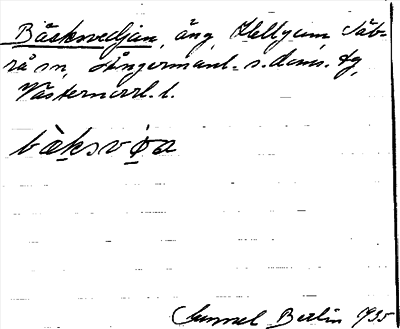 Bäcksvedjan, äng, Hellgum, Säb-
rå sn, Ångermanl. s. doms. tg,
Västernorrl. l.
bäksvøa
Gunnel Berlin 1935